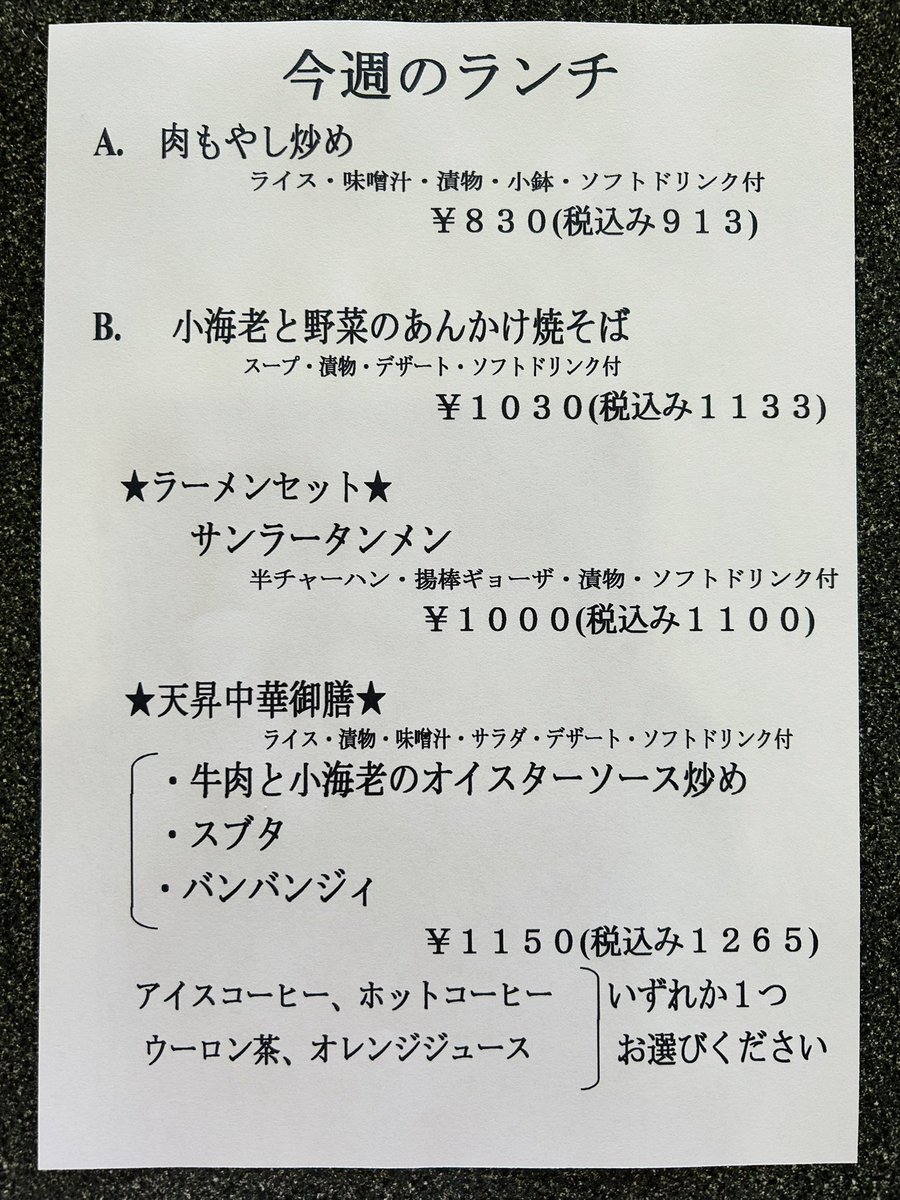 今週のランチ
A. 肉もやし炒め
ライス・味噌汁・漬物・小鉢・ソフトドリンク付
￥８３０(税込み９１３)
B. 小海老と野菜のあんかけ焼そば
スープ・漬物・デザート・ソフトドリンク付
￥１０３０(税込み１１３３)
★ラーメンセット★
サンラータンメン
半チャーハン・揚棒ギョーザ・漬物・ソフトドリンク付
￥１０００(税込み１１００)
★天昇中華御膳★
ライス・漬物・味噌汁・サラダ・デザート・ソフトドリンク付
・牛肉と小海老のオイスターソース炒め
・スブタ
・バンバンジィ
￥１１５０(税込み１２６５)
アイスコーヒー、ホットコーヒー
ウーロン茶、オレンジジュース
いずれか１つ
お選びください